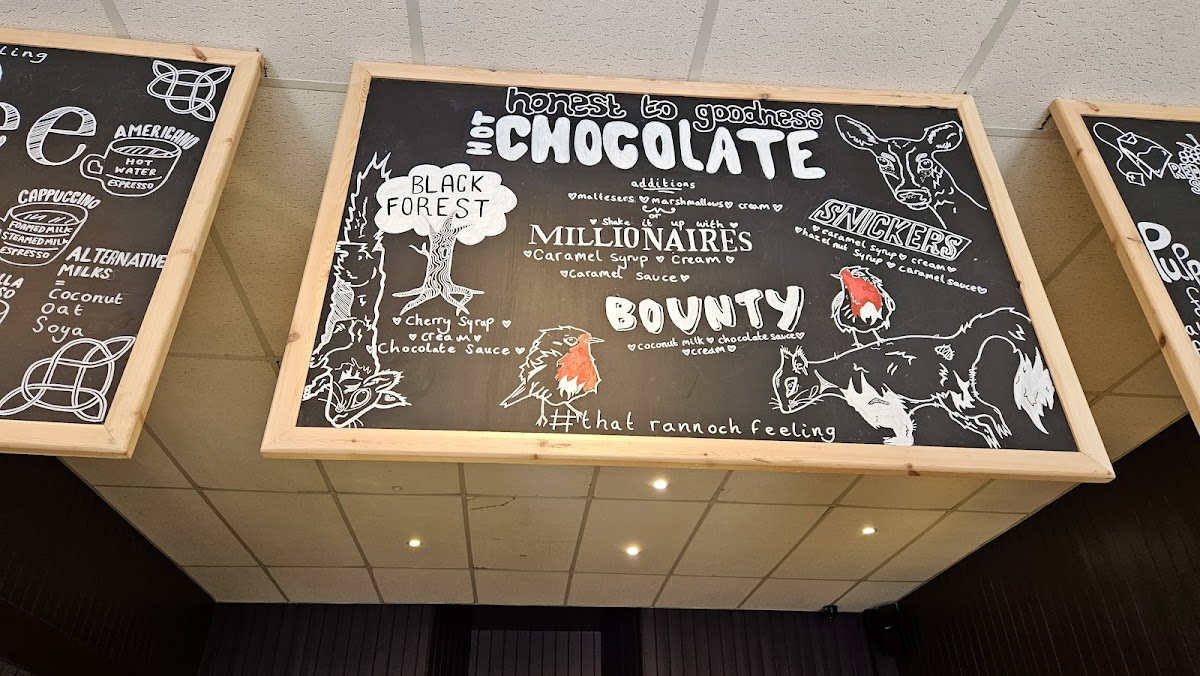 ling
ee
AMERICANO
HOT
WATER
ESPRESSO
CAPPUCCINO
FOAMED MILK
STEAMED MILK
ESPRESSO
ALTERNATIVE
MILKS
=
Coconut
Oat
Soya
honest to goodness
HOT CHOCOLATE
additions
♡maltesers ♡marshmallows♡ cream♡
or
♡ Shake it up with ♡
MILLIONAIRES
♡Caramel syrup ♡ Cream ♡
♡Caramel Sauce♡
BLACK
FOREST
♡ Cherry Syrup ♡
♡ cream ♡
Chocolate Sauce ♡
SNICKERS
♡ caramel syrup ♡ cream ♡
♡hazelnut syrup ♡ caramel sauce♡
BOUNTY
♡coconut milk ♡ chocolate sauce♡
♡cream♡
#that rannoch feeling